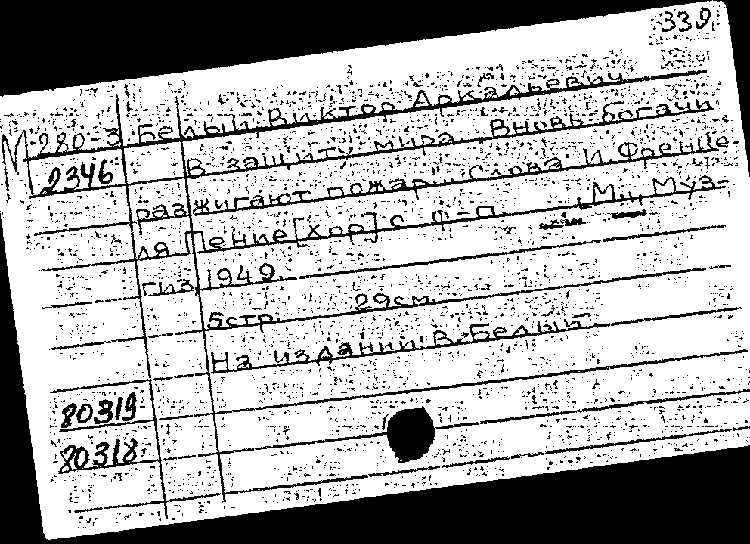 339
М 280-3 Белый, Виктор Аркадьевич
2346 В защиту мира. "Вновь богачи
разжигают пожар"... Слова И. Френке-
ля Пение [хор] с ф-п. М., Муз-
гиз, 1949.
5стр. 29см.
На издании: В. Белый
80319
80318